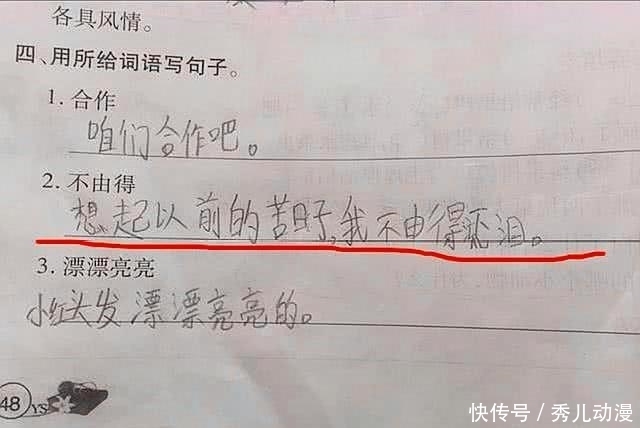 各具风情。
四、用所给词语写句子。
1. 合作
咱们合作吧。
2. 不由得
想起以前的苦日子,我不由得泪。
3. 漂漂亮亮
小红头发漂漂亮亮的。
48 YS
快传号/秀儿动漫